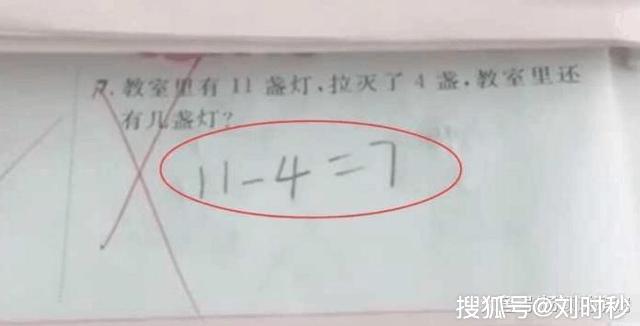 7. 教室里有 11 盏灯,拉灭了 4 盏,教室里还
有几盏灯?
11-4=7
搜狐号@刘时秒